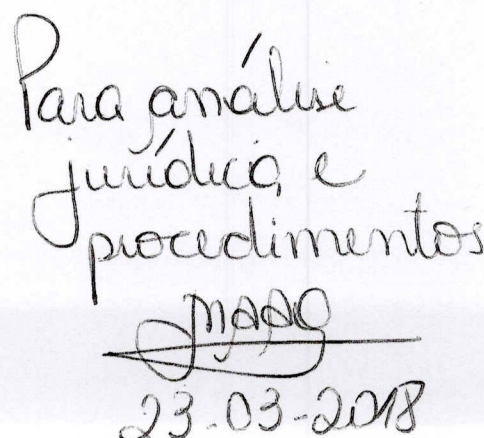 Para análise
jurídica, e
procedimentos
23-03-2018